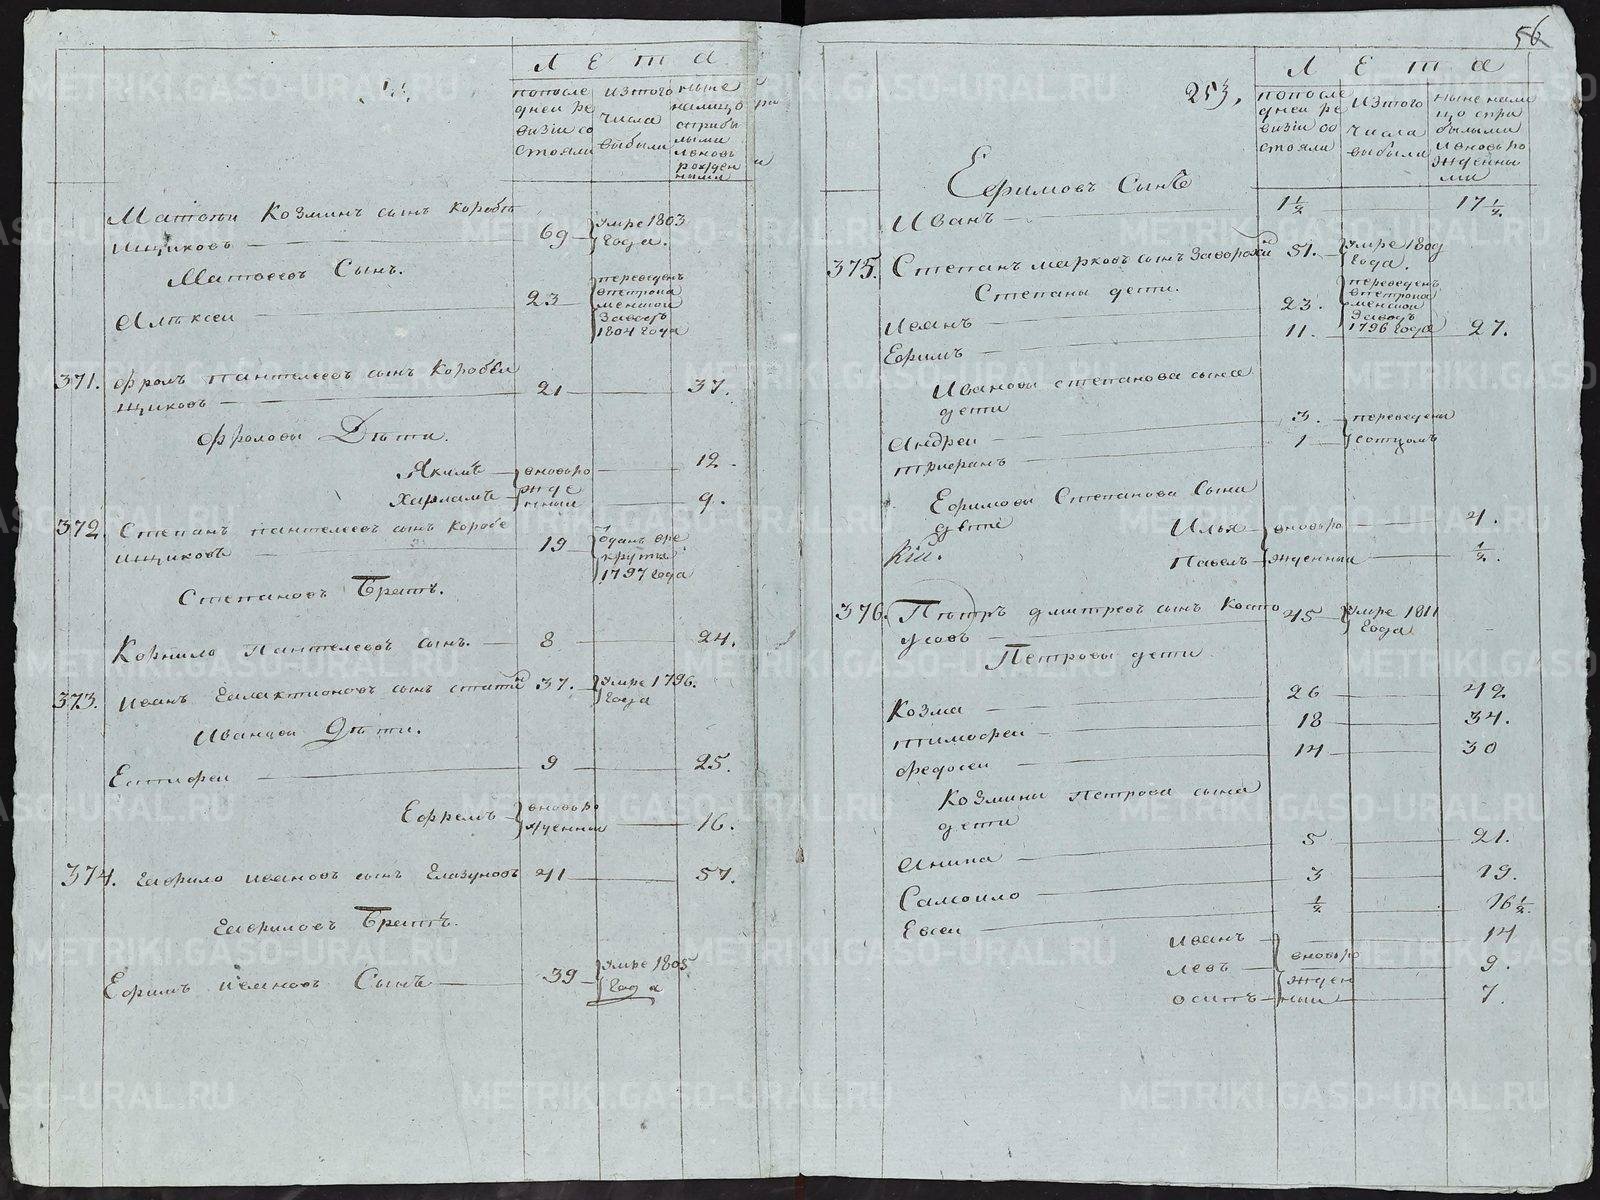 Л е т а
попосле
дней ре
визіи со
стояли
изтого
числа
выбыли
ныне
налицо
сприбы
лыми
ивновь
рожден
ными
Матфеи Козминъ сынъ коробе
ищиковъ — 69 — умре 1803
года.
Матвеевъ Сынъ.
Алѣксеи — 23 — переведенъ
меншои
Заводъ
1804 года
371. Фролъ пантелеевъ сынъ Коробеи
щиковъ — 21 — 37.
Фроловы Дѣти.
Якимъ — вновьро — 12.
Харламъ — жде
нныи — 9.
372. Степанъ пантелеевъ сынъ коробе
ищиковъ — 19 — отданъ вре
круты
1797 года
Степановъ Братъ.
Корнило Пантелеевъ сынъ. — 8 — 24.
373. Иванъ Галактионовъ сынъ 37. умре 1796.
года
Ивановы Дѣти.
Естифеи — 9 — 25.
Ефремъ — вновьро
жденныи — 16.
374. Гаврило ивановъ сынъ Глазуновъ 41 — 57.
Гавриловъ Братъ.
Ефимъ ивановъ Сынъ — 39 — умре 1805
года
56
253.
Л е т а
попосле
дней ре
визіи со
стояли
изтого
числа
выбыли
ныне нали
цо спри
былыми
ивновь ро
жденны
ми
Ефимовъ Сынъ
Иванъ — 1 1/2 — 17 1/2.
375. Степанъ марковъ сынъ 51. — умре 1809
года.
Степаны дети.
Иванъ — 23. переведенъ
меншои
Заводъ
1796 года
Ефимъ — 11. — 27.
Ивановы степанова сына
дети
Андреи — 3. переведены
Трифанъ — 1 — сотцомъ
Ефимовы Степанова Сына
дѣти
Илья — вновьро — 4.
Павелъ — жденныи — 1/2.
376. Пѣтръ дмитревъ сынъ Косто
усовъ — 45 умре 1811
года
Петровы дети
Козма — 26 — 42.
тимофеи — 18 — 34.
федосеи — 14 — 30
Козмины Петрова сына
дети
Аника — 5 — 21.
Самоило — 3 — 19.
Евсеи — 1/2 — 16 1/2.
иванъ — 14
левъ — вновьро — 9.
осипъ — жден
ныи — 7.
METRIKI.GASO-URAL.RU